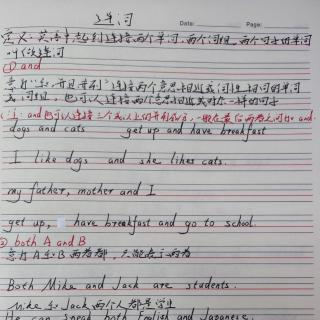 连词
Date: Page:
定义:英语中,起到连接两个单词,两个词组,两个句子的单词
叫做连词
① and
意为"和,并且,并列"连接两个意思相近或词性相同的单词
或词组,也可以连接两个意思相近或时态一样的句子
and也可以连接三个或以上的并列成分,一般在最后两者之间加and
dogs and cats get up and have breakfast
I like dogs and she likes cats.
my father, mother and I
get up, have breakfast and go to school.
② both A and B
意为A和B两者都,只能表示两者
Both Mike and Jack are students.
Mike和Jack两个人都是学生
He can speak both English and Japanese.